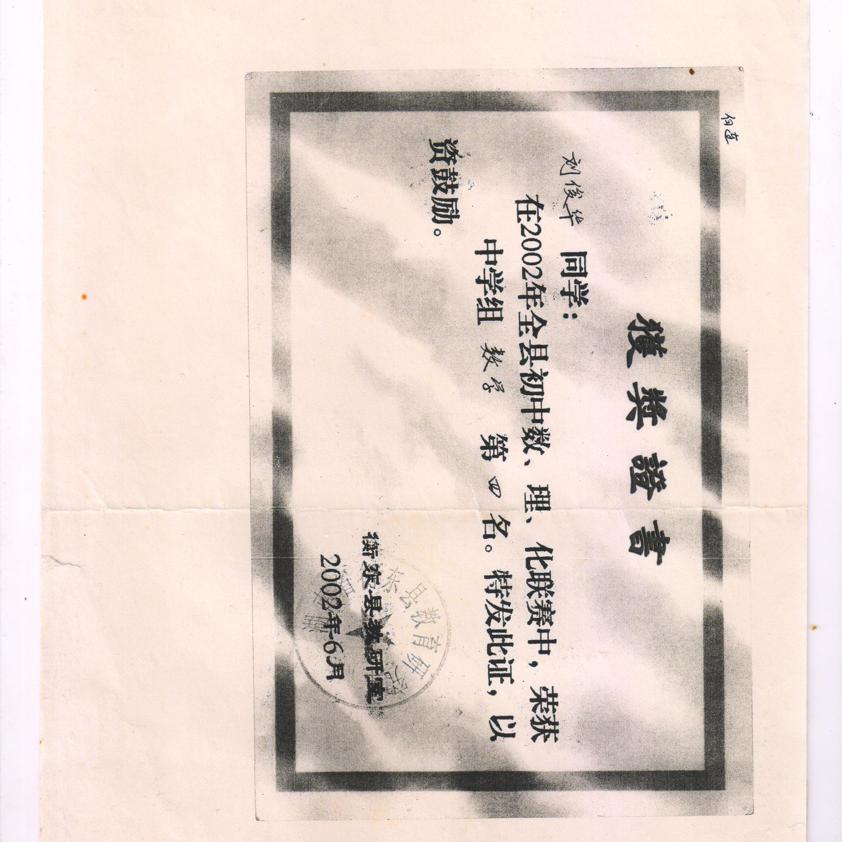 獲獎證書
刘俊华 同学：
在2002年全县初中数、理、化联赛中，荣获
中学组 数学 第四名。特发此证，以
资鼓励。
衡东县教研室
2002年6月
东县教育研